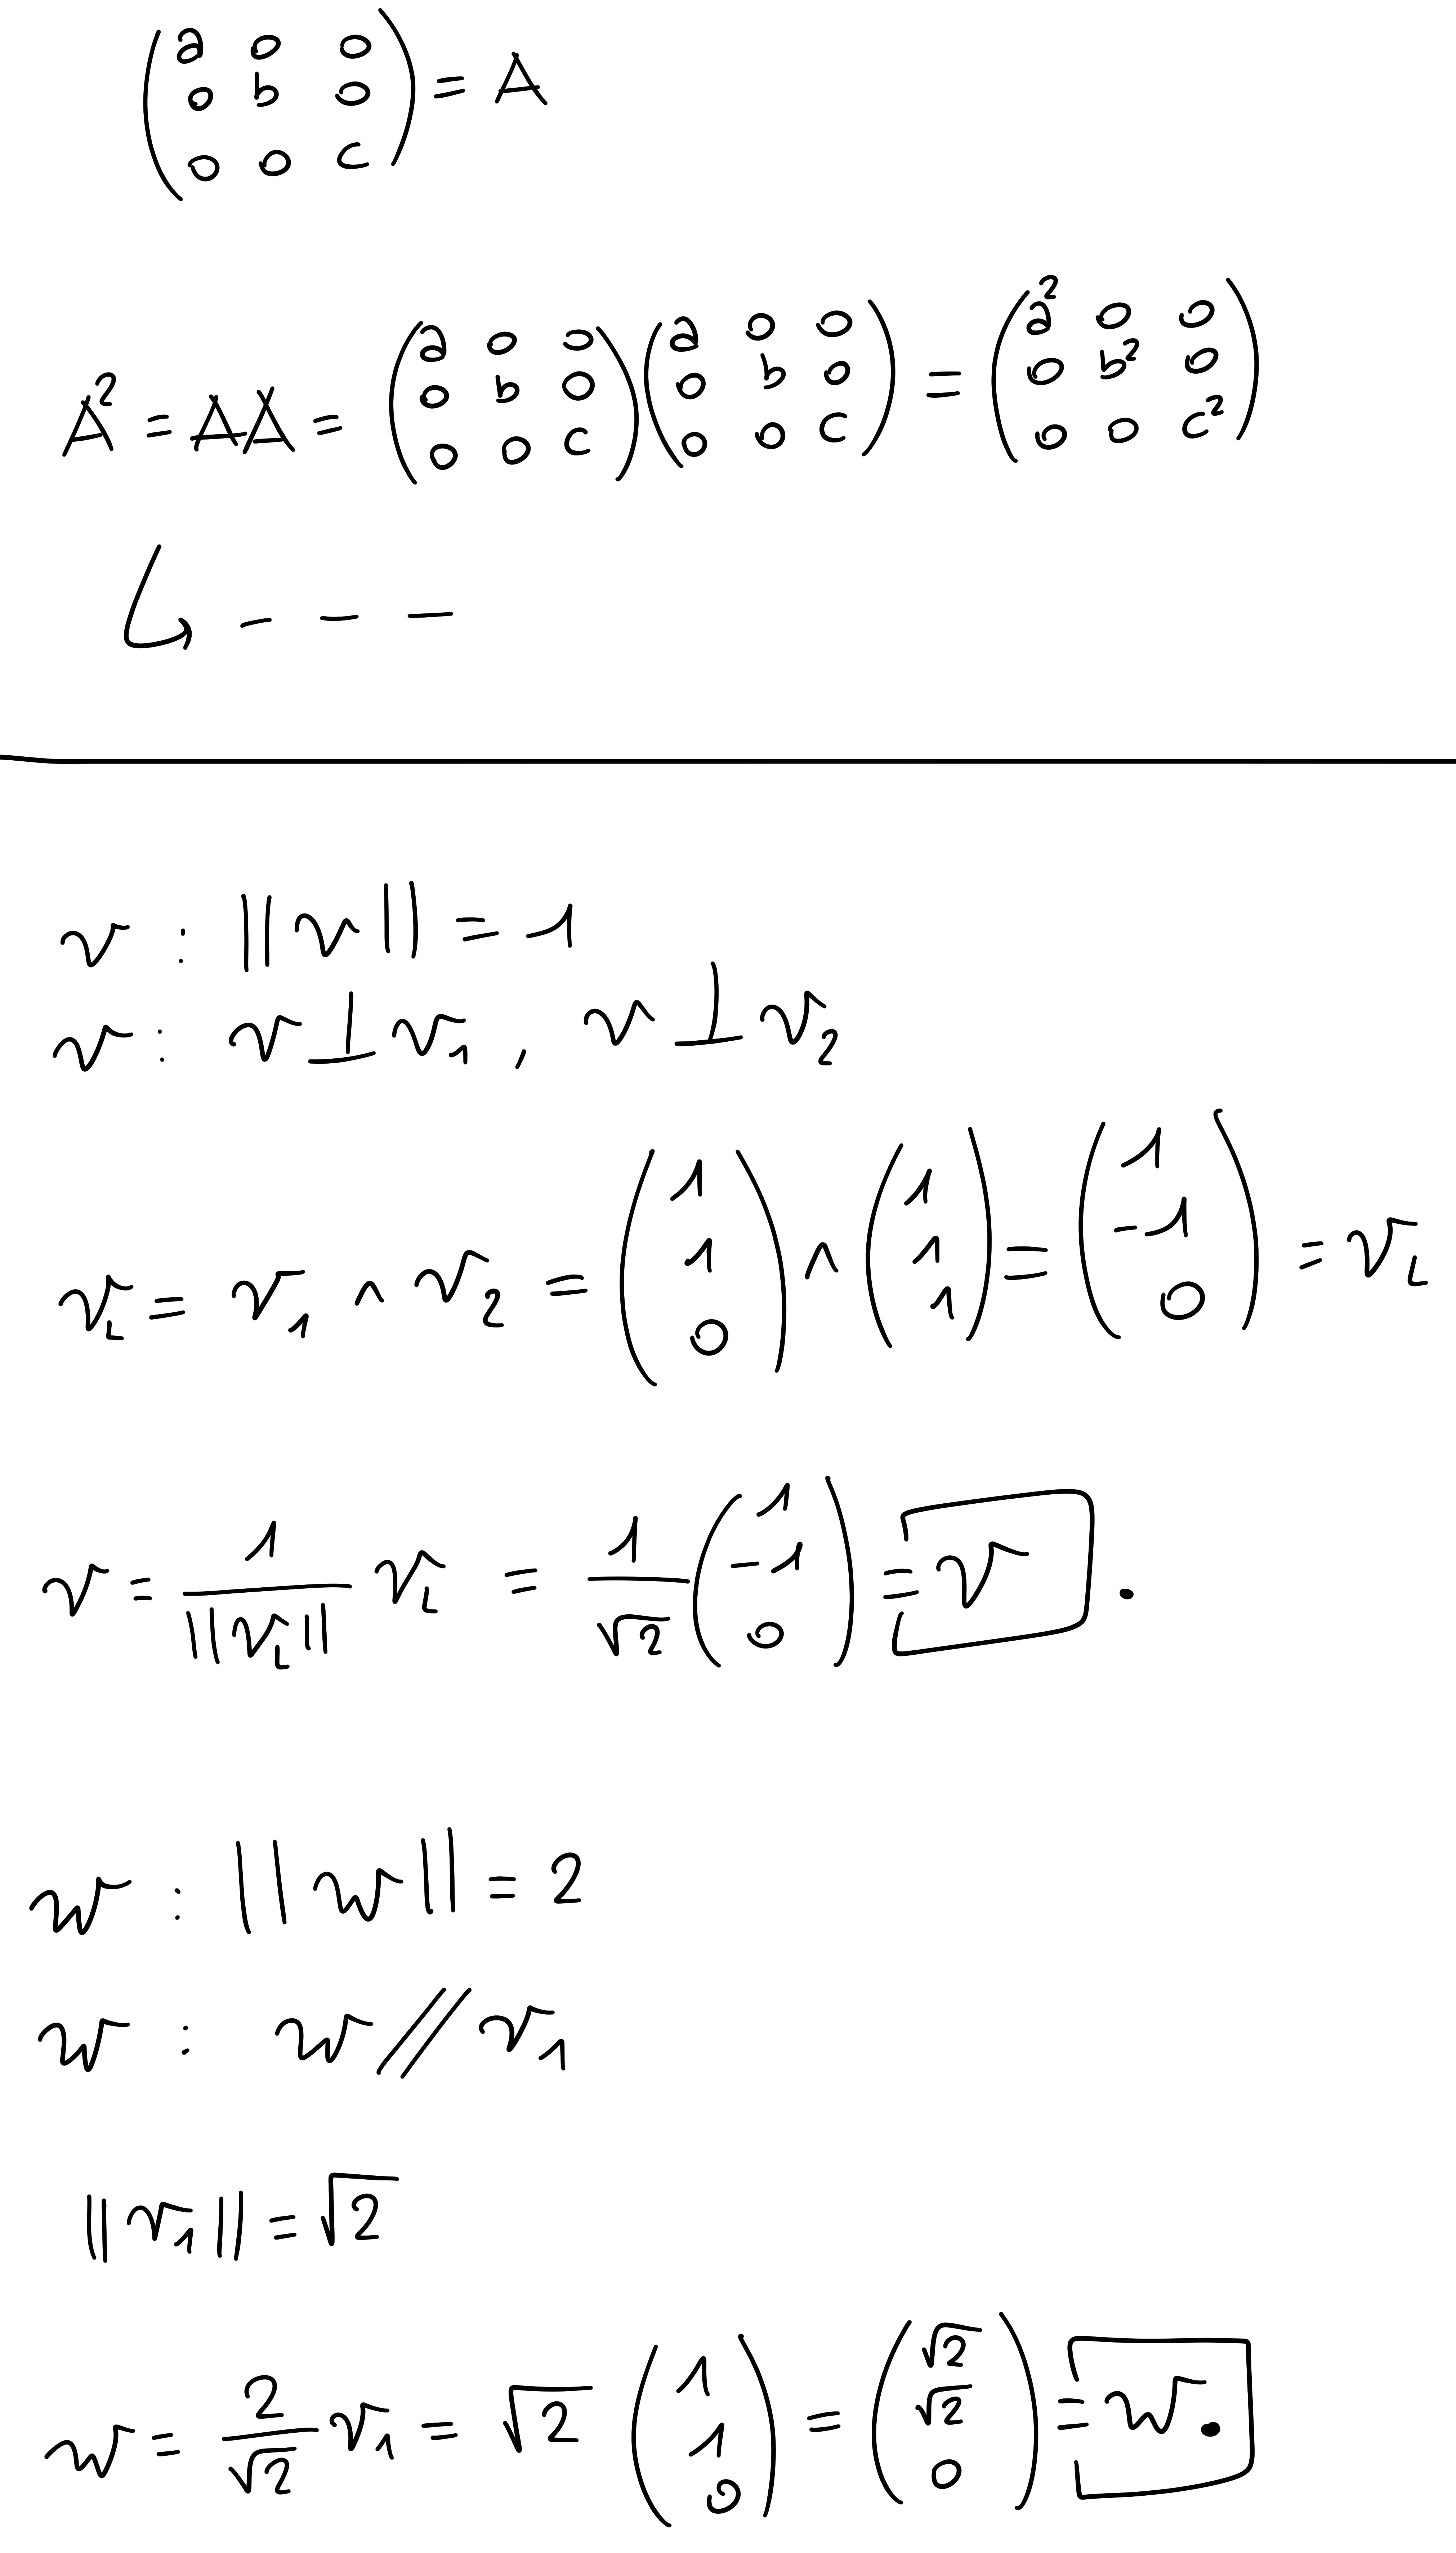 (a 0 0; 0 b 0; 0 0 c) = A
A² = AA = (a 0 0; 0 b 0; 0 0 c) (a 0 0; 0 b 0; 0 0 c) = (a² 0 0; 0 b² 0; 0 0 c²)
↳ - - -
v : ||v|| = 1
v : v ⊥ v₁ , v ⊥ v₂
v_L = v₁ ∧ v₂ = (1; 1; 0) ∧ (1; 1; 1) = (1; -1; 0) = v_L
v = 1/||v_L|| v_L = 1/√2 (1; -1; 0) = v .
w : ||w|| = 2
w : w // v₁
||v₁|| = √2
w = 2/√2 v₁ = √2 (1; 1; 0) = (√2; √2; 0) = w.